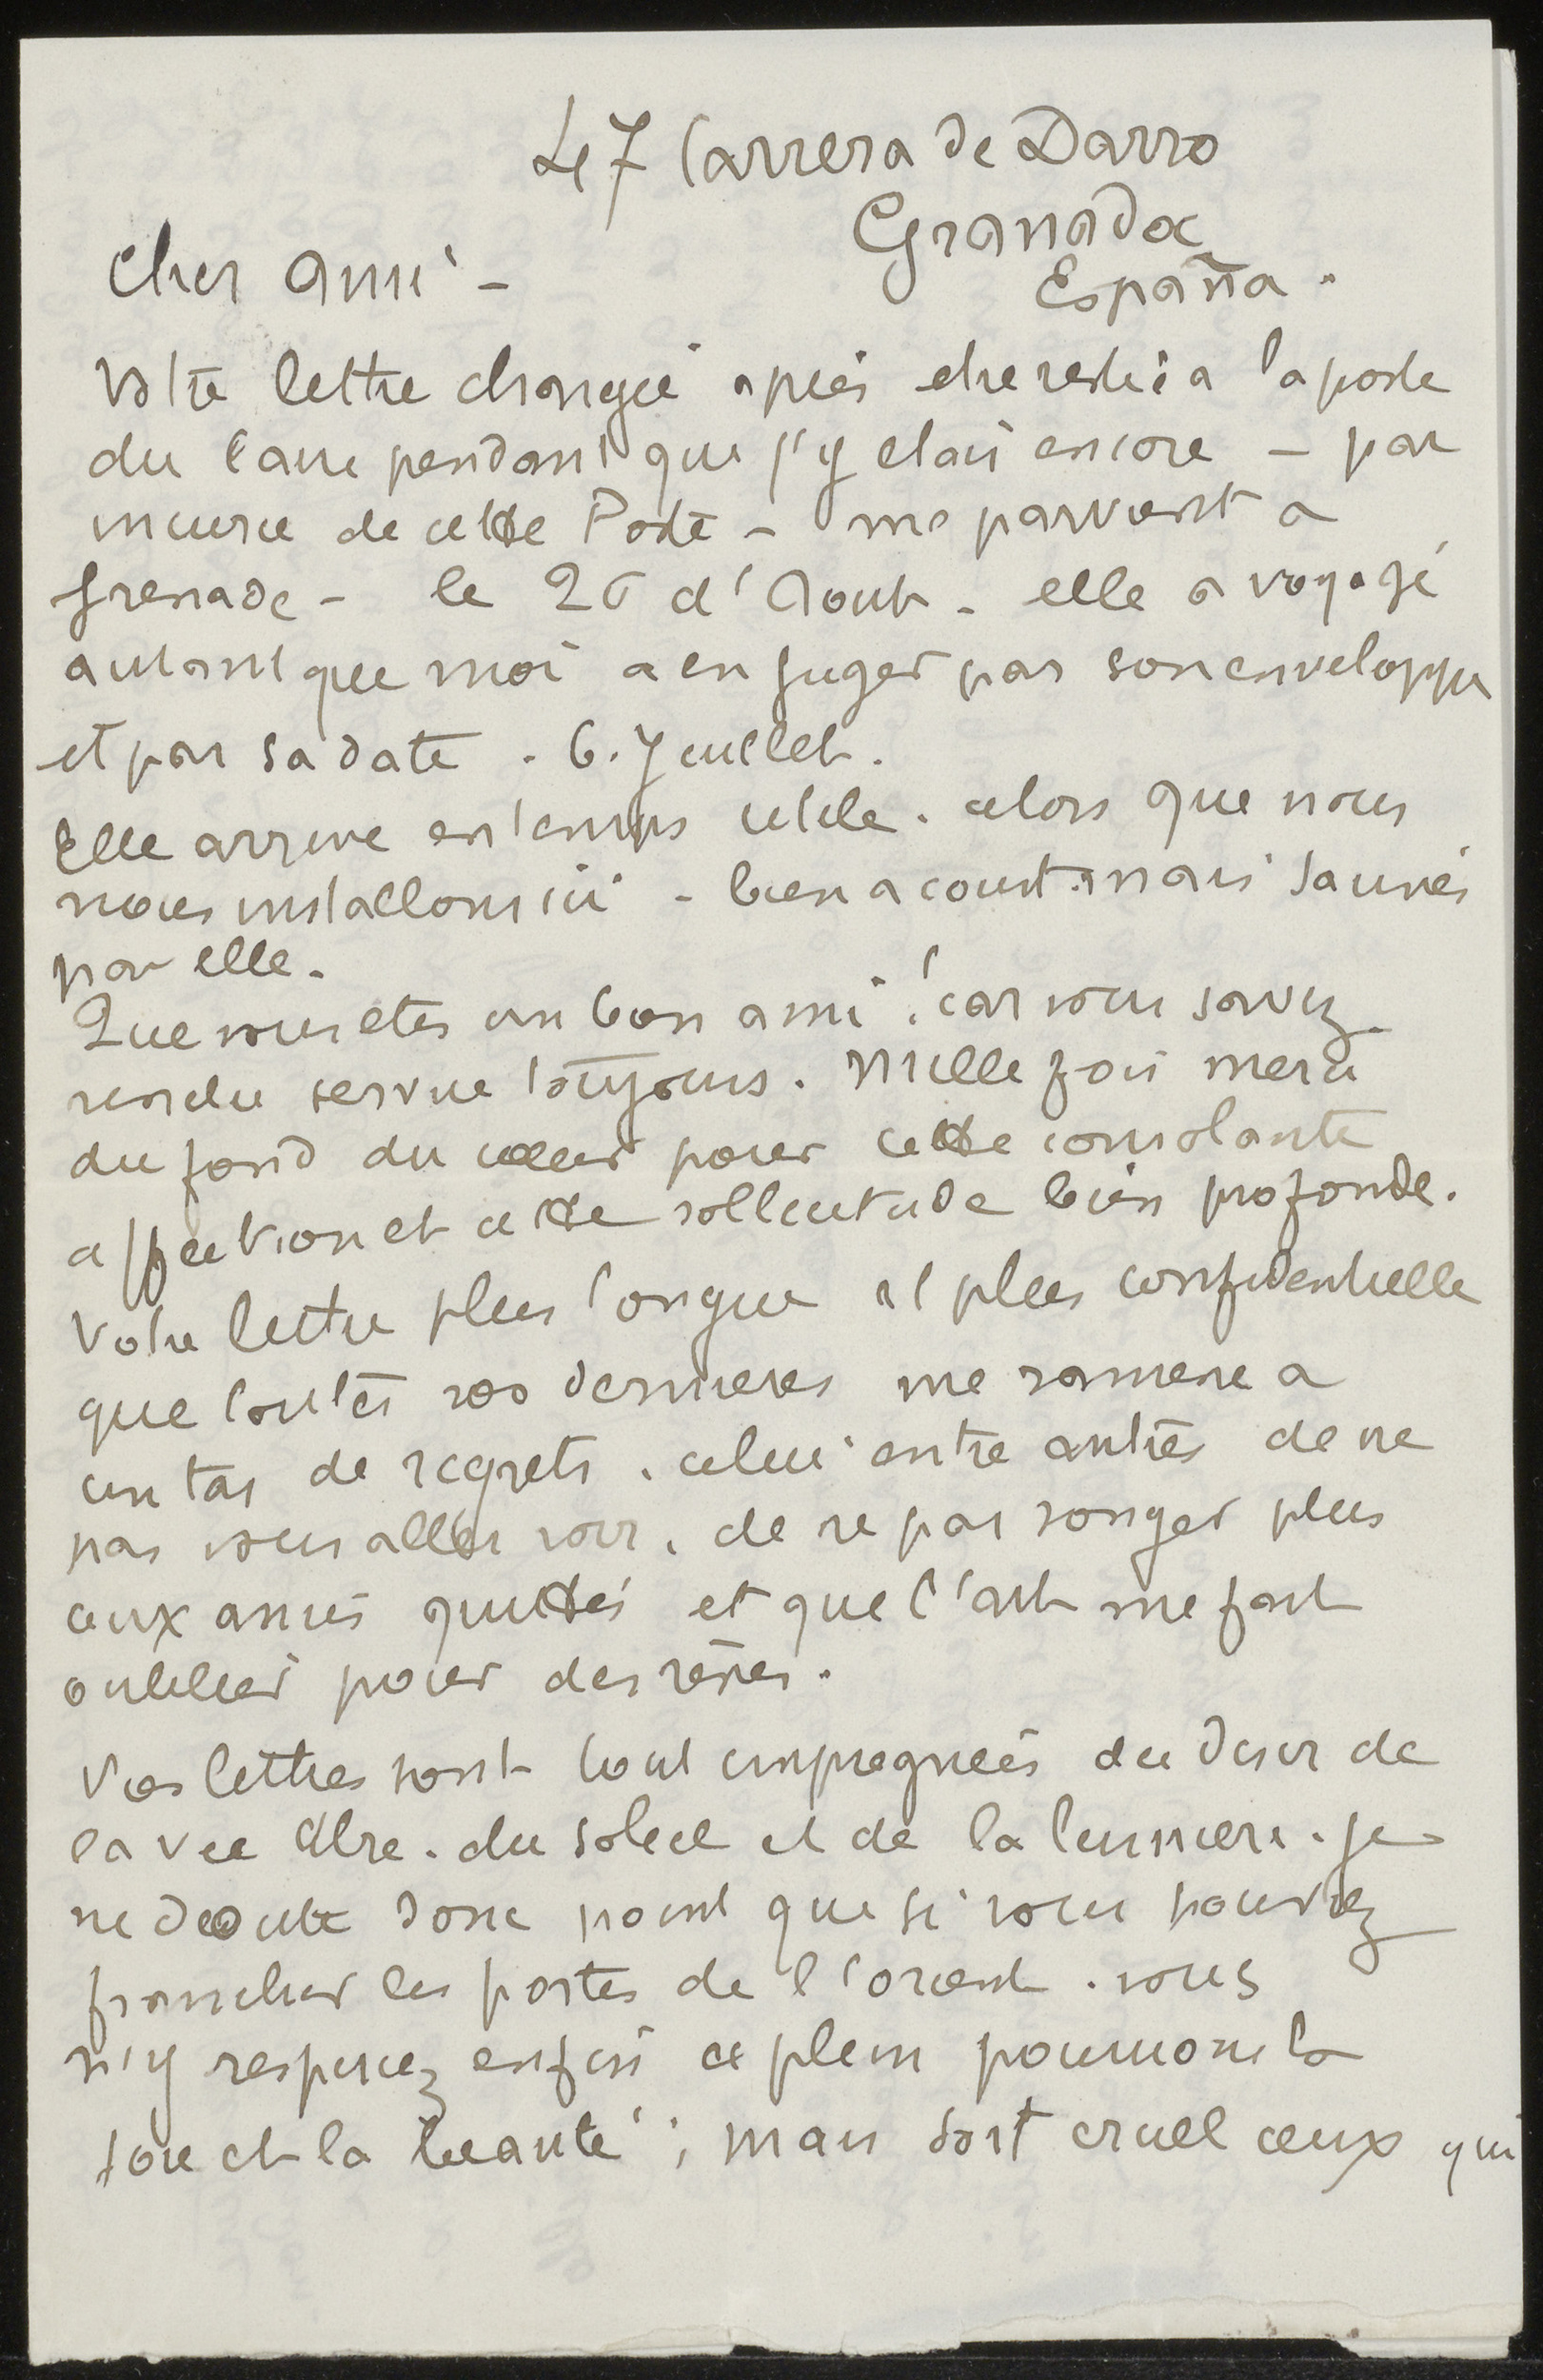 47 Carrera de Darro
Granada
España.
Cher ami -
Votre lettre chargée après etre restée a la poste
du Caire pendant que j'y etais encore - par
incurie de cette Poste - me parvient a
Grenade - le 26 d'Aout - elle a voyagé
autant que moi a en juger par son enveloppe
et par sa date . 6. Juillet.
Elle arrive en temps utile . alors que nous
nous installons ici - bien a court . mais sauvés
par elle.
Que vous etes un bon ami ! car vous savez
rendre service toujours. Mille fois merci
du fond du coeur pour cette consolante
affection et cette sollicitude bien profonde.
Votre lettre plus longue et plus confidentielle
que toutes vos dernieres me ramene a
un tas de regrets . celui entre autres de ne
pas vous aller voir . de ne pas songer plus
aux amis quittés et que l'art me fait
oublier pour des rêves.
Vos lettres sont tout impregnées du desir de
la vie libre . du soleil et de la lumiere . je
ne doute donc point que si vous pouviez
franchir les portes de l'orient . vous
n'y respiriez enfin a plein poumons la
joie et la beauté ; mais sort cruel ceux qui